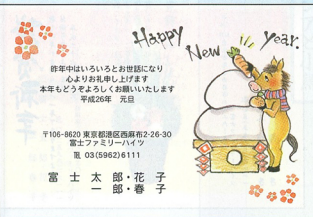 Happy New Year.
昨年中はいろいろとお世話になり
心よりお礼申し上げます
本年もどうぞよろしくお願いいたします
平成26年　元旦
〒106-8620 東京都港区西麻布2-26-30
富士ファミリーハイツ
TEL 03(5962)6111
富　士　太　郎・花　子
一　郎・春　子